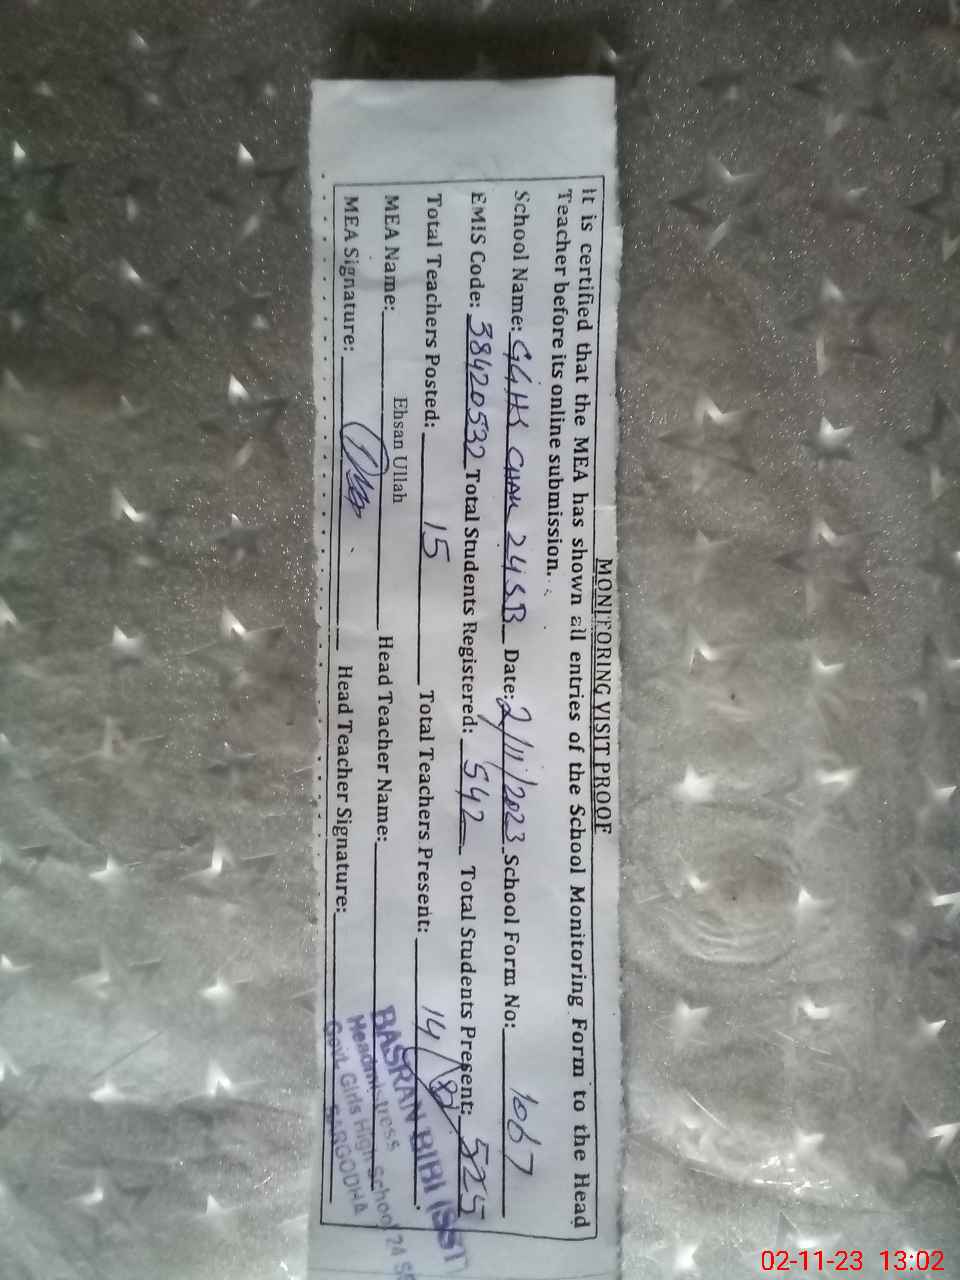 MONITORING VISIT PROOF
It is certified that the MEA has shown all entries of the School Monitoring Form to the Head
Teacher before its online submission.
School Name: GGHS CHAK 24 SB Date: 2/11/2023 School Form No: 1067
EMIS Code: 38420532 Total Students Registered: 542 Total Students Present: 525
Total Teachers Posted: 15 Total Teachers Present: 14
MEA Name: Ehsan Ullah Head Teacher Name:
MEA Signature: Head Teacher Signature:
BASRAN BIBI (SST
Headmistress
Govt. Girls High School 24 S
SARGODHA
02-11-23 13:02